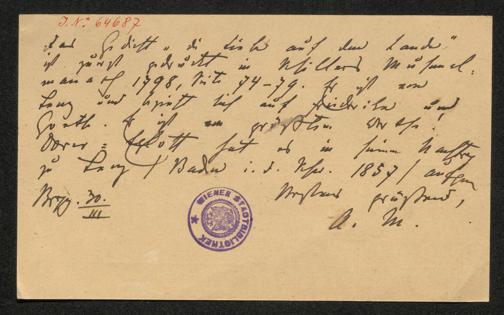 J. N. 64687
Das Gedicht „die Liebe auf dem Lande"
ist zuerst gedruckt in Schillers Musenal-
manach 1798, Seite 74-79. Es ist von
Lenz und bezieht sich auf Friederike und
Goethe. Es ist von größtem Werthe.
Dorer-Egloff hat es in seinen Nachträgen
zu Lenz (Baden i. d. Schw. 1857)
30.
III
grüßend,
A. M.
WIENER STADTBIBLIOTHEK